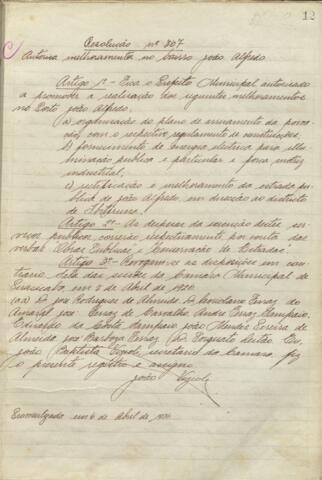 12
Resolução nº 207
Autorisa melhoramentos no bairro João Alfredo
Artigo 1º - Fica o Prefeito Municipal autorisado
a promover a realisação dos seguintes melhoramentos
no Porto João Alfredo.
a) organisação do plano de arruamento da povoa-
ção, com o respectivo regulamento de construcções,
b) fornecimento de energia electrica para illu-
minação publica e particular e força motriz
industrial;
c) rectificação e melhoramento da estrada pu-
blica de João Alfredo em direcção ao districto
de
Artigo 2º - As despezas da execução destes ser-
viços publicos correrão, respectivamente, por conta das
verbas "Obras Publicas" e "Conservação de Estradas".
Artigo 3º - Revogam-se as disposições em con-
trario. Sala das sessões da Camara Municipal de
Piracicaba, em 5 de Abril de 1920.
(aa) Dr. José Rodrigues de Almeida, Dr. Coriolano Ferraz do
Amaral, José Ferraz de Carvalho, André Ferraz Sampaio,
Eduardo da Costa Sampaio, João Mendes Pereira de
Almeida, José Barboza Ferraz, (Dr.) Torquato Leitão. Eu,
João Baptista Vizioli, secretario da Camara, fiz
o presente registro e assigno.
João Vizioli
Promulgada em 6 de Abril de 1920